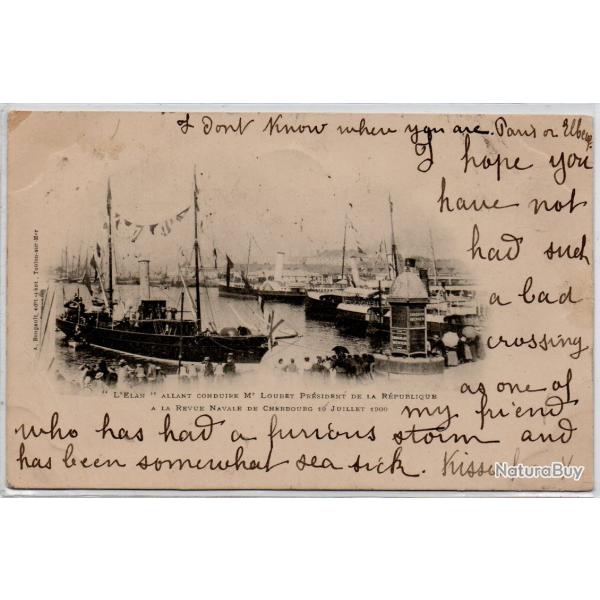 I Dont Know where you are. Paris or Elbeuf.
I hope you
have not
had such
a bad
crossing
as one of
my friend
who has had a furious storm and
has been somewhat sea sick. Kisses
A. Bougault, édit.-phot., Toulon-sur-Mer
"L'Elan" allant conduire Mr Loubet Président de la République
a la Revue Navale de Cherbourg 19 Juillet 1900
NaturaBuy